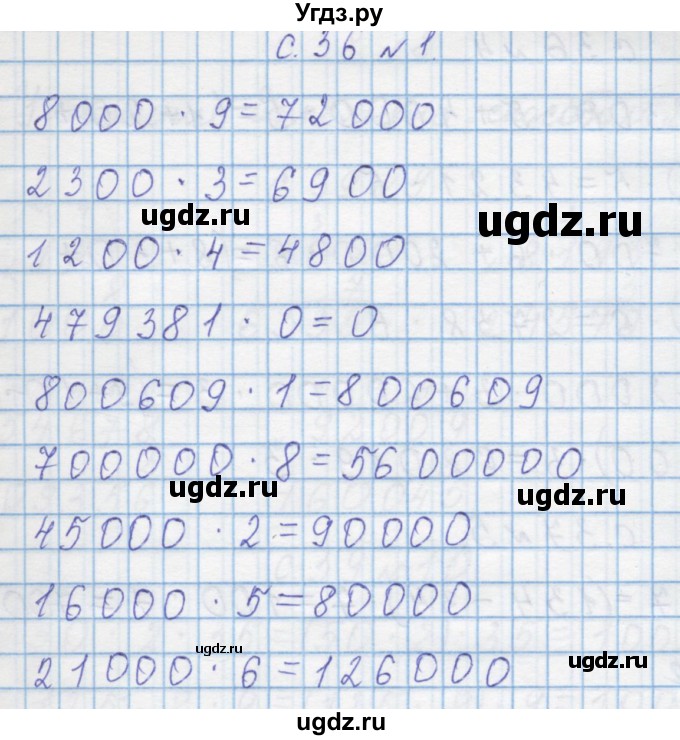 Угдз.ру
С. 36 № 1.
8000 · 9 = 72000
2300 · 3 = 6900
ugdz.ru
ugdz.ru
1200 · 4 = 4800
479381 · 0 = 0
800609 · 1 = 800609
700000 · 8 = 5600000
ugdz.ru
ugdz.ru
45000 · 2 = 90000
16000 · 5 = 80000
ugdz.ru
21000 · 6 = 126000
ugdz.ru
ugdz.ru